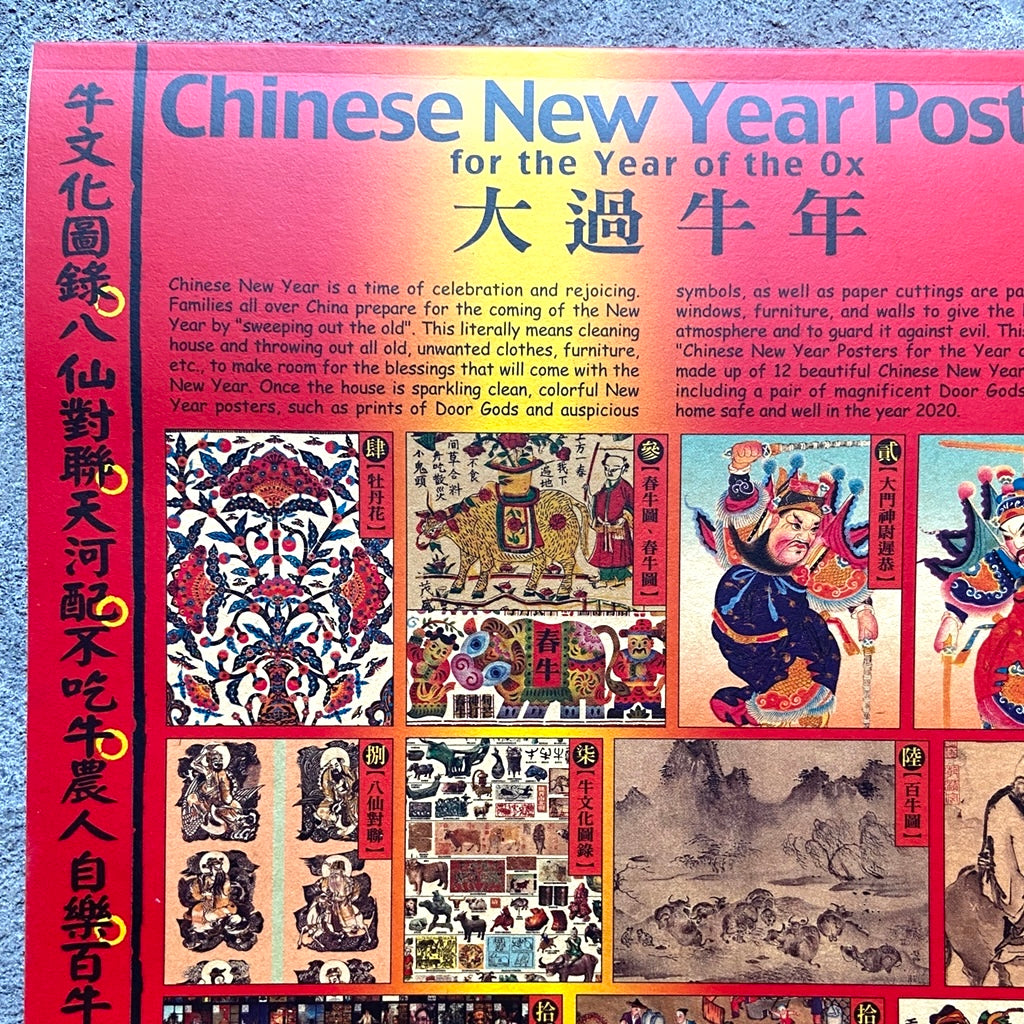 Chinese New Year Post
for the Year of the Ox
大過牛年
牛文化圖錄八仙對聯天河配不吃牛農人自樂百牛
Chinese New Year is a time of celebration and rejoicing.
Families all over China prepare for the coming of the New
Year by "sweeping out the old". This literally means cleaning
house and throwing out all old, unwanted clothes, furniture,
etc., to make room for the blessings that will come with the
New Year. Once the house is sparkling clean, colorful New
Year posters, such as prints of Door Gods and auspicious
symbols, as well as paper cuttings are pa
windows, furniture, and walls to give the
atmosphere and to guard it against evil. This
"Chinese New Year Posters for the Year
made up of 12 beautiful Chinese New Year
including a pair of magnificent Door Gods
home safe and well in the year 2020.
肆【牡丹花】
參【春牛圖、春牛圖】
春牛
貳【大門神尉遲恭】
捌【八仙對聯】
柒【牛文化圖錄】
陸【百牛圖】
拾
拾